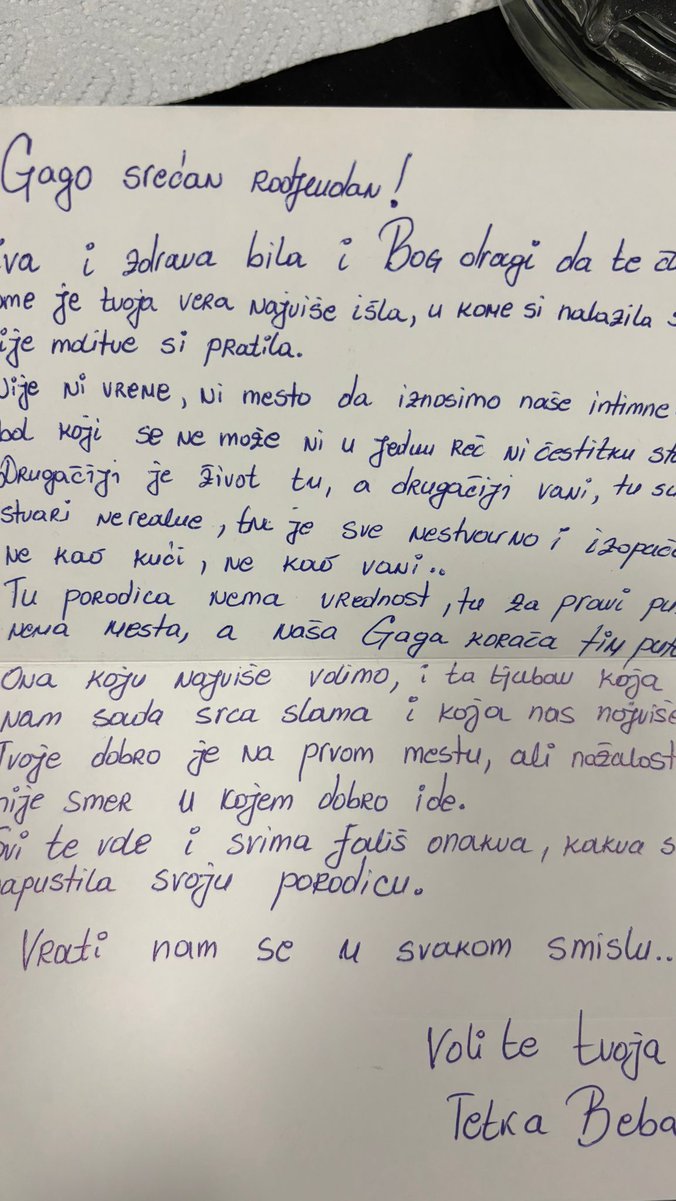 Gago srećan rodjendan!
iva i zdrava bila i Bog dragi da te
ome je tvoja vera najviše išla, u kome si nalazila s
ije molitve si pratila.
Nije ni vreme, ni mesto da iznosimo naše intimne
bol koji se ne može ni u jednu reč ni čestitku st
Drugačiji je život tu, a drugačiji vani, tu su
stvari nerealne, tu je sve nestvarno i izopač
ne kao kući, ne kao vani..
Tu porodica nema vrednost, tu za pravi pu
nema mesta, a naša Gaga korača tim put
Ona koju najviše volimo, i ta ljubav koja
nam sada srca slama i koja nas najviše
Tvoje dobro je na prvom mestu, ali nažalost
nije smer u kojem dobro ide.
Svi te vole i svima fališ onakva, kakva s
napustila svoju porodicu.
Vrati nam se u svakom smislu..
Voli te tvoja
Tetka Beba